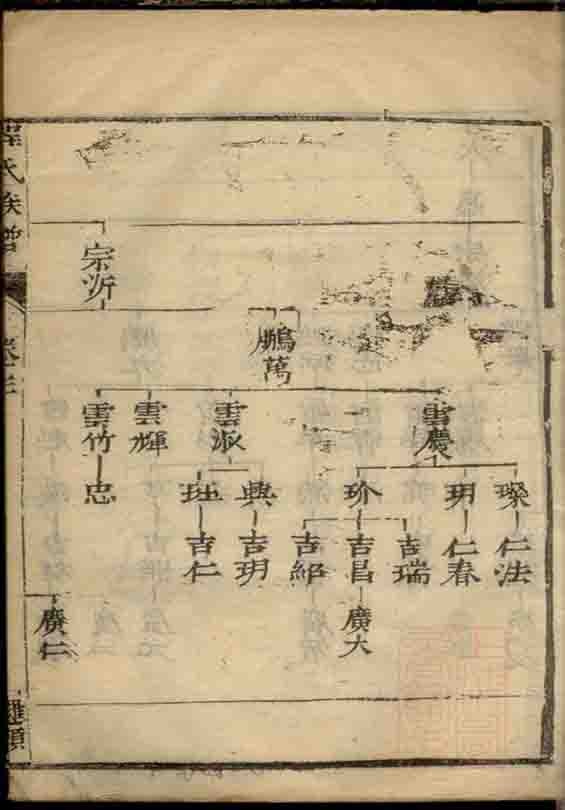 宗沂
鵬萬
雲慶
雲淑
雲輝
雲竹
忠
琛
玥
玠
典
珄
仁法
仁春
吉瑞
吉昌
吉紹
吉玥
吉仁
廣大
廣仁
氏族譜